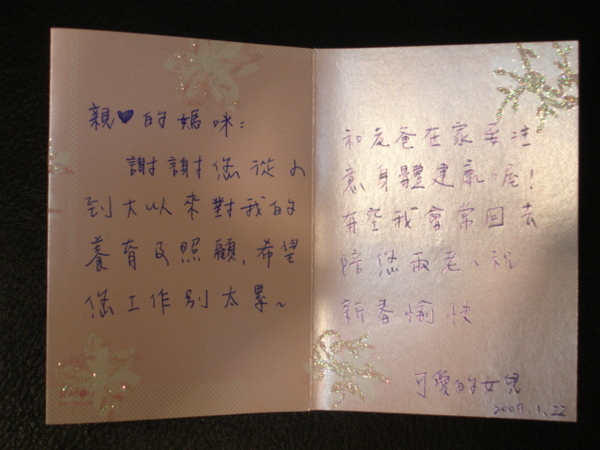 親♥的媽咪：
謝謝您從小
到大以來對我的
養育及照顧，希望
您工作別太累~
和友爸在家要注
意身體建氣喔！
有空我會常回去
陪您兩老、祝
新春愉快
可愛的女兒
2007.1.22